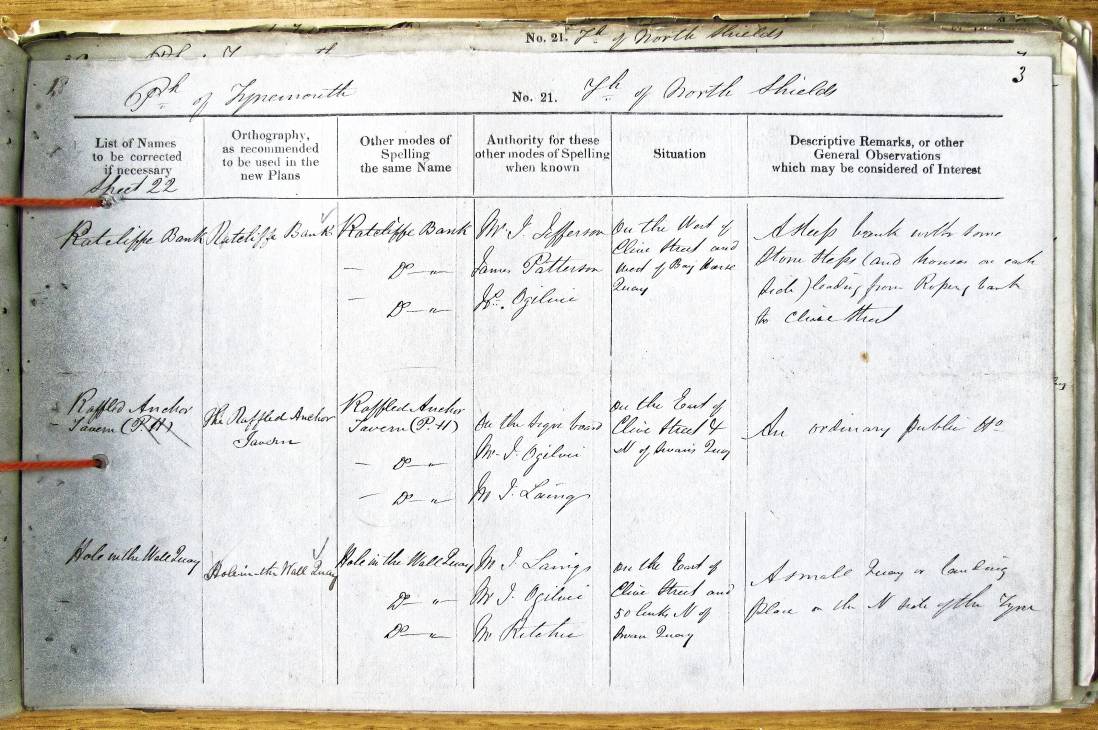 No. 21. Tp. of North Shields
3
Ph. of Tynemouth
No. 21. Tp. of North Shields
List of Names to be corrected if necessary
Orthography, as recommended to be used in the new Plans
Other modes of Spelling the same Name
Authority for these other modes of Spelling when known
Situation
Descriptive Remarks, or other General Observations which may be considered of Interest
Sheet 22
Ratcliffe Bank
Ratcliffe Bank
Ratcliffe Bank
Do "
Do "
Mr. J. Jefferson
James Patterson
Ogilvie
On the West of
Clive Street and
West of Bay Horse
Quay
A Steep bank with some
Stone Steps (and houses on each
side) leading from Roperg bank
to Clive Street
Raffled Anchor
Tavern (P.H)
The Raffled Anchor
Tavern
Raffled Anchor
Tavern (P.H)
Do "
Do "
On the Sign board
Mr. J. Ogilvie
Mr J. Laing
On the East of
Clive Street &
N of Swan's Quay
An ordinary public Ho.
Hole in the Wall Quay
Hole in the Wall Quay
Hole in the Wall Quay
Do "
Do "
Mr J. Laing
Mr J. Ogilvie
Mr Ritchie
On the East of
Clive Street and
50 links N of
Swan Quay
A small Quay or landing
place on the N side of the Tyne